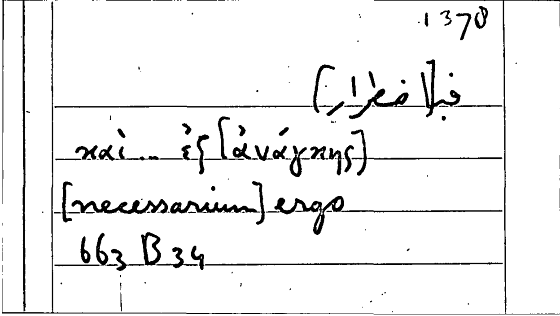 1378
فبـ[اضطرار]
καὶ ... ἐξ [ἀνάγκης]
[necessarium] ergo
663 B 34